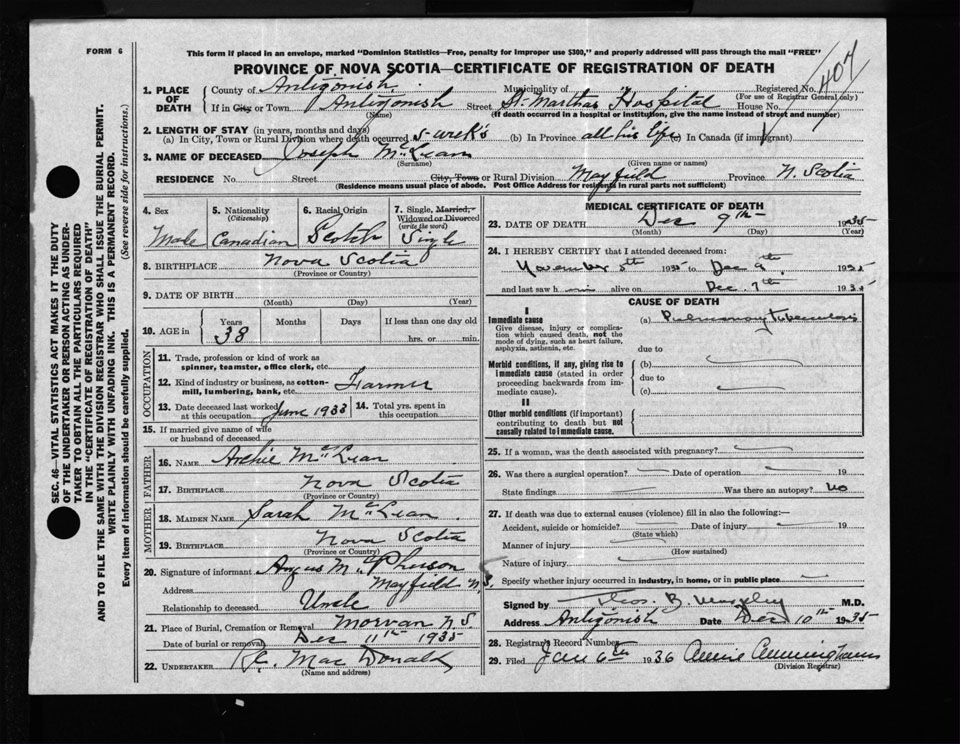 FORM 6
This form if placed in an envelope, marked "Dominion Statistics—Free, penalty for improper use $300," and properly addressed will pass through the mail "FREE"
PROVINCE OF NOVA SCOTIA—CERTIFICATE OF REGISTRATION OF DEATH
407
SEC. 46—VITAL STATISTICS ACT MAKES IT THE DUTY
OF THE UNDERTAKER OR PERSON ACTING AS UNDER-
TAKER TO OBTAIN ALL THE PARTICULARS REQUIRED
IN THE "CERTIFICATE OF REGISTRATION OF DEATH"
AND TO FILE THE SAME WITH THE DIVISION REGISTRAR WHO SHALL ISSUE THE BURIAL PERMIT.
WRITE PLAINLY WITH UNFADING INK. THIS IS A PERMANENT RECORD.
Every item of information should be carefully supplied. (See reverse side for instructions.)
1. PLACE OF DEATH
County of Antigonish Municipality of Registered No.
(For use of Registrar General only)
If in City or Town Antigonish Street St. Marthas Hospital House No.
(Name) (If death occurred in a hospital or institution, give the name instead of street and number)
2. LENGTH OF STAY (in years, months and days)
(a) In City, Town or Rural Division where death occurred 5-week's (b) In Province all his life (c) In Canada (if immigrant)
3. NAME OF DECEASED Joseph McLean
(Surname) (Given name or names)
RESIDENCE No. Street City, Town or Rural Division Mayfield Province N. Scotia
(Residence means usual place of abode. Post Office Address for residents in rural parts not sufficient)
4. Sex Male
5. Nationality (Citizenship) Canadian
6. Racial Origin Scotch
7. Single, Married, Widowed or Divorced (write the word) Single
8. BIRTHPLACE Nova Scotia
(Province or Country)
9. DATE OF BIRTH
(Month) (Day) (Year)
10. AGE in Years Months Days If less than one day old
38 hrs. or min.
OCCUPATION
11. Trade, profession or kind of work as
spinner, teamster, office clerk, etc.
12. Kind of industry or business, as cotton-
mill, lumbering, bank, etc. Farmer
13. Date deceased last worked
at this occupation June 1933
14. Total yrs. spent in
this occupation
15. If married give name of wife
or husband of deceased
FATHER
16. NAME Archie McLean
17. BIRTHPLACE Nova Scotia
(Province or Country)
MOTHER
18. MAIDEN NAME Sarah McLean
19. BIRTHPLACE Nova Scotia
(Province or Country)
20. Signature of informant Angus McPherson
Address Mayfield N.S.
Relationship to deceased Uncle
21. Place of Burial, Cremation or Removal Morvan N S
Date of burial or removal Dec 11th 1935
22. UNDERTAKER MacDonald
(Name and address)
MEDICAL CERTIFICATE OF DEATH
23. DATE OF DEATH Dec 9th 1935
(Month) (Day) (Year)
24. I HEREBY CERTIFY that I attended deceased from:
November 5th 1935 to Dec 9th, 1935
and last saw him alive on Dec. 7th, 1935
CAUSE OF DEATH
I
Immediate cause (a) Pulmonary tuberculosis
Give disease, injury or complica-
tion which caused death, not the
mode of dying, such as heart failure,
asphyxia, asthenia, etc.
due to
Morbid conditions, if any, giving rise to
immediate cause (stated in order
proceeding backwards from im-
mediate cause).
(b)
due to
(c)
II
Other morbid conditions (if important)
contributing to death but not
causally related to immediate cause.
25. If a woman, was the death associated with pregnancy?
26. Was there a surgical operation? Date of operation 19
State findings Was there an autopsy? No
27. If death was due to external causes (violence) fill in also the following:—
Accident, suicide or homicide? Date of injury 19
(State which)
Manner of injury
(How sustained)
Nature of injury
Specify whether injury occurred in industry, in home, or in public place
Signed by Thos. B. M.D.
Address Antigonish Date Dec 10th 1935
28. Registrar's Record Number
29. Filed Jan 6th 1936 Annie Cunningham
(Division Registrar)